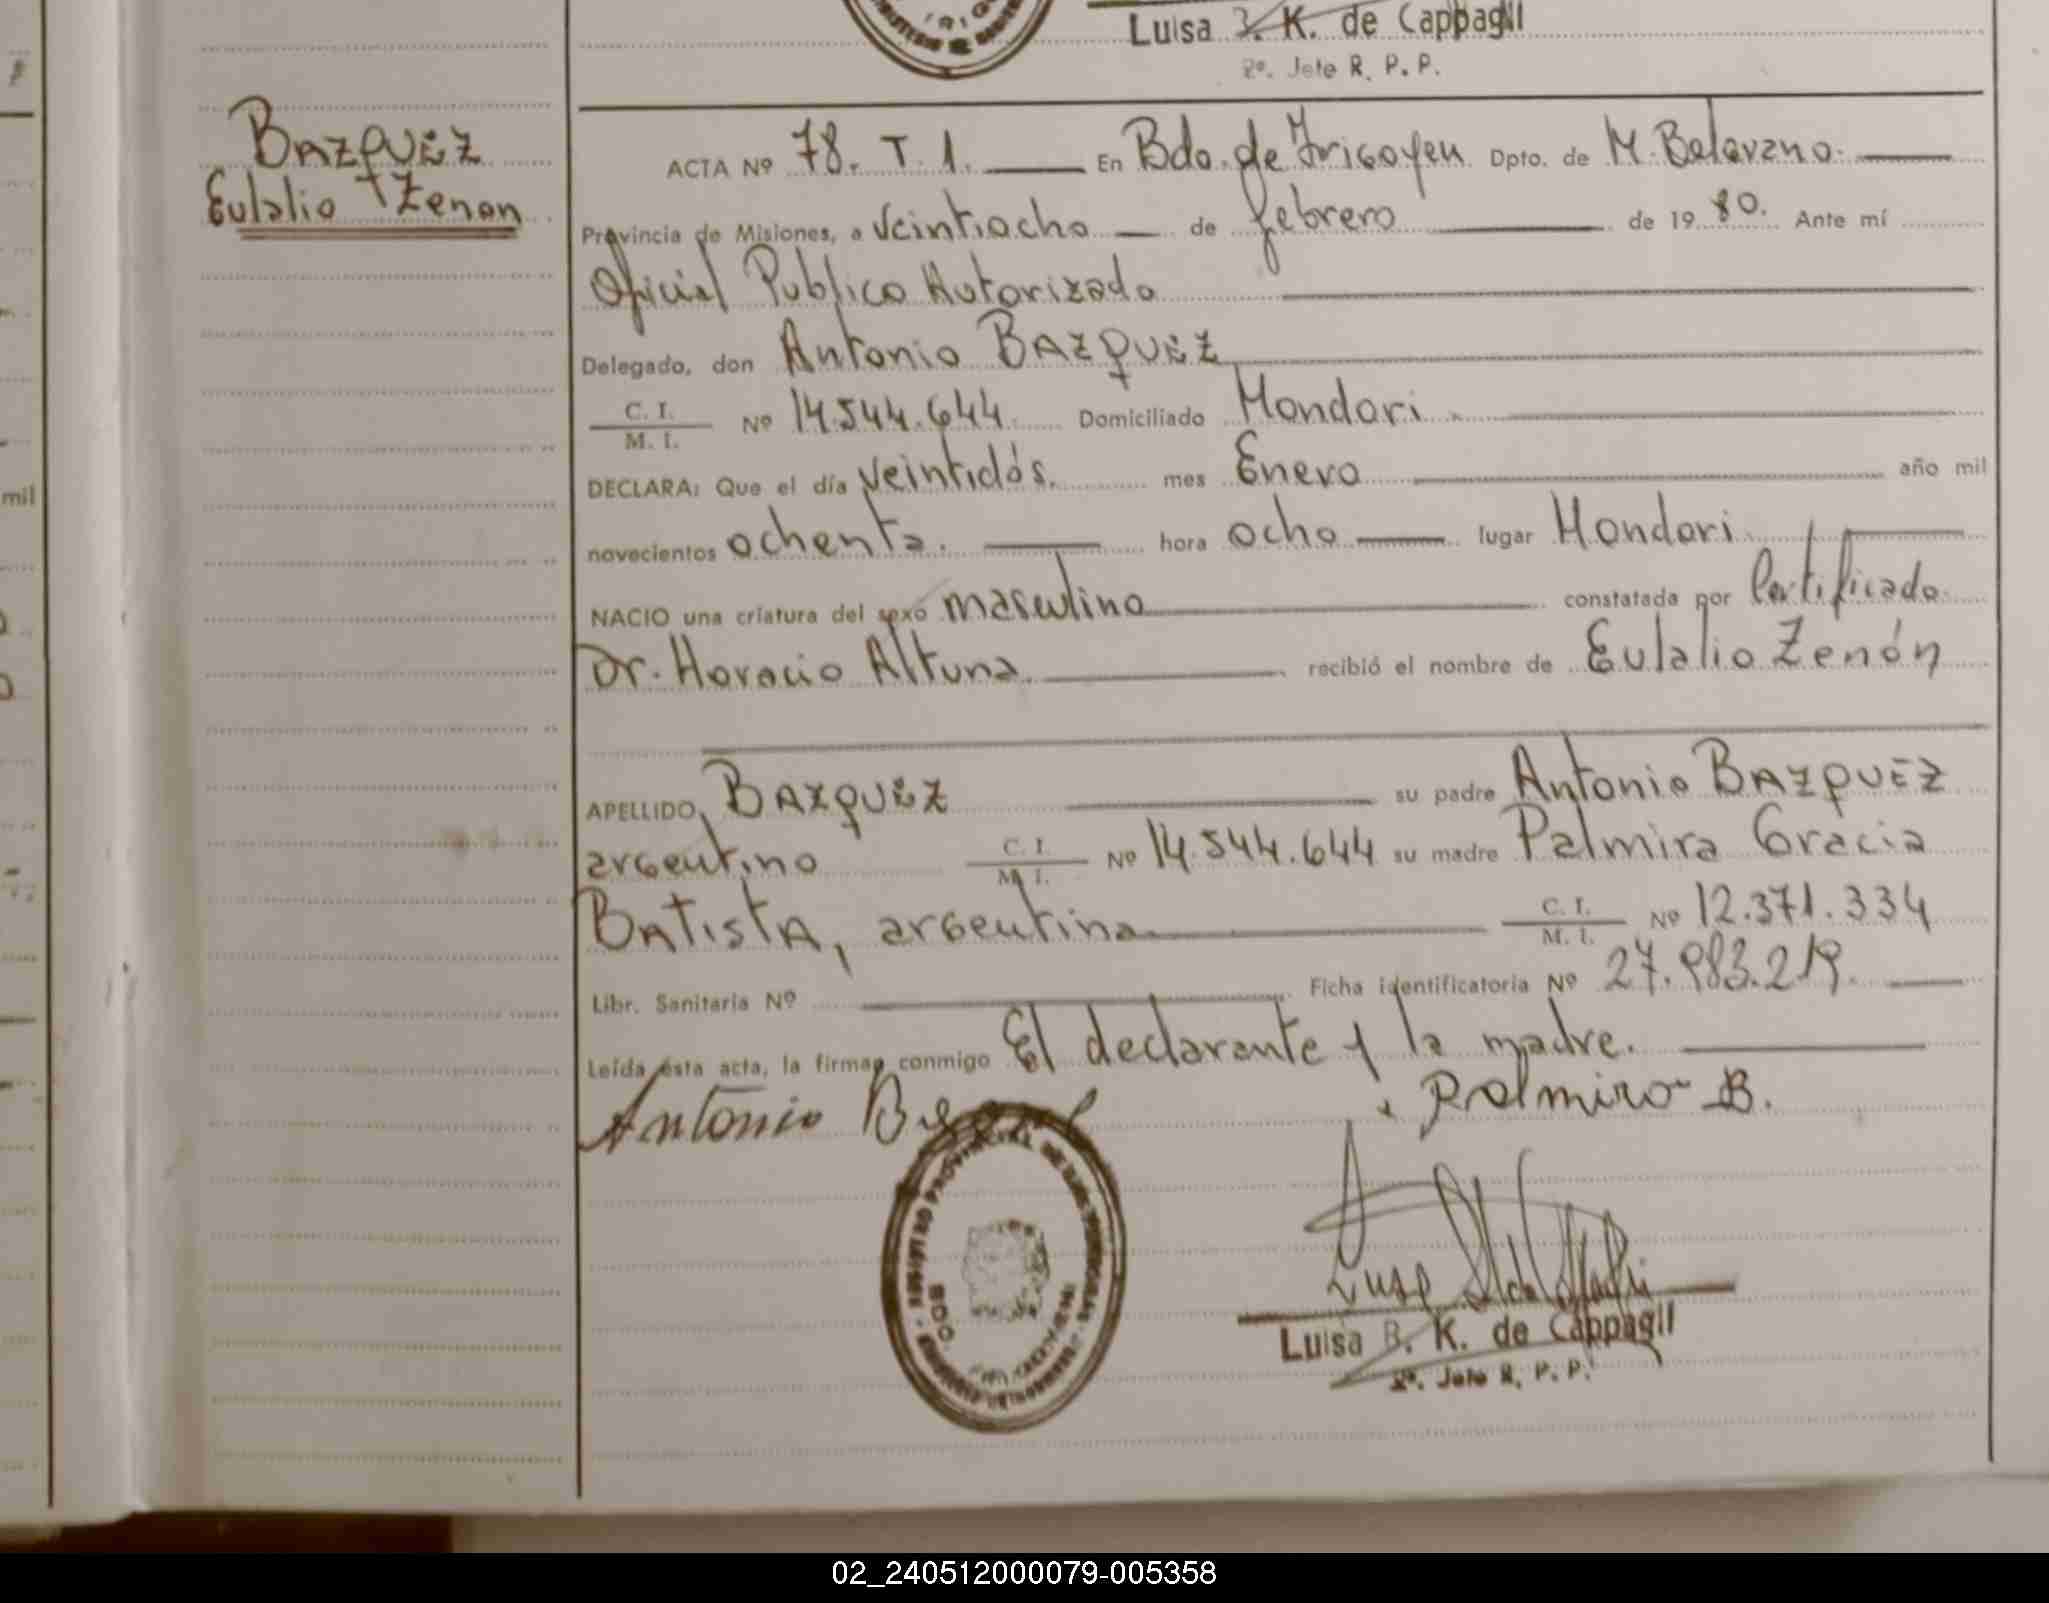 Luisa B. K. de Cappagli
2º. Jefe R. P. P.
BAZQUEZ
Eulalio Zenon
ACTA Nº 78. T. 1. En Bdo. de Irigoyen Dpto. de M. Belgrano.
Provincia de Misiones, a veintiocho de febrero de 1980. Ante mí
Oficial Publico Autorizado
Delegado, don Antonio BAZQUEZ
C. I.
M. I. Nº 14.544.644. Domiciliado Mondori.
DECLARA: Que el día veintidós. mes Enero año mil
novecientos ochenta. hora ocho lugar Mondori.
NACIO una criatura del sexo masculino constatada por Certificado
Dr. Horacio Altuna. recibió el nombre de Eulalio Zenón
APELLIDO, BAZQUEZ su padre Antonio BAZQUEZ
argentino C. I.
M. I. Nº 14.544.644 su madre Palmira Gracia
BAtistA, argentina C. I.
M. I. Nº 12.371.334
Libr. Sanitaria Nº Ficha identificatoria Nº 27.983.219.
Leída ésta acta, la firman conmigo El declarante y la madre.
Antonio
Palmira B.
BDO.
Luisa B. K. de Cappagli
2º. Jefe R. P. P.
mil
02_240512000079-005358